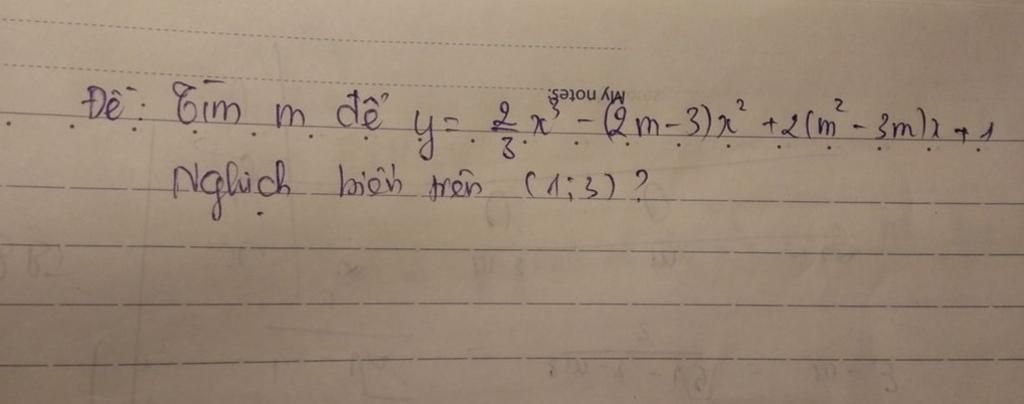 My notes
Đề: Tìm m để y = 2/3 x³ - (2m-3)x² + 2(m² - 3m)x + 1
Nghịch biến trên (1;3)?